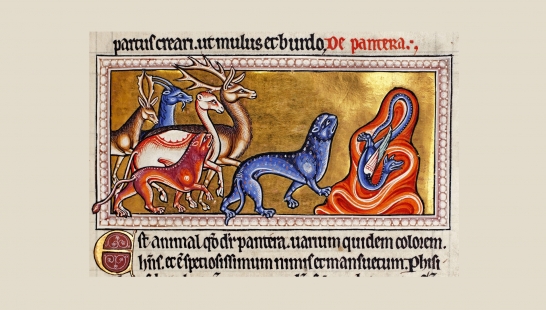 partus creari. ut mulus et burdo, De pantera.
Est animal qd dr pantera. uarium quidem colorem.
hns. et est speciosissimum nimis et mansuetum. Phisi